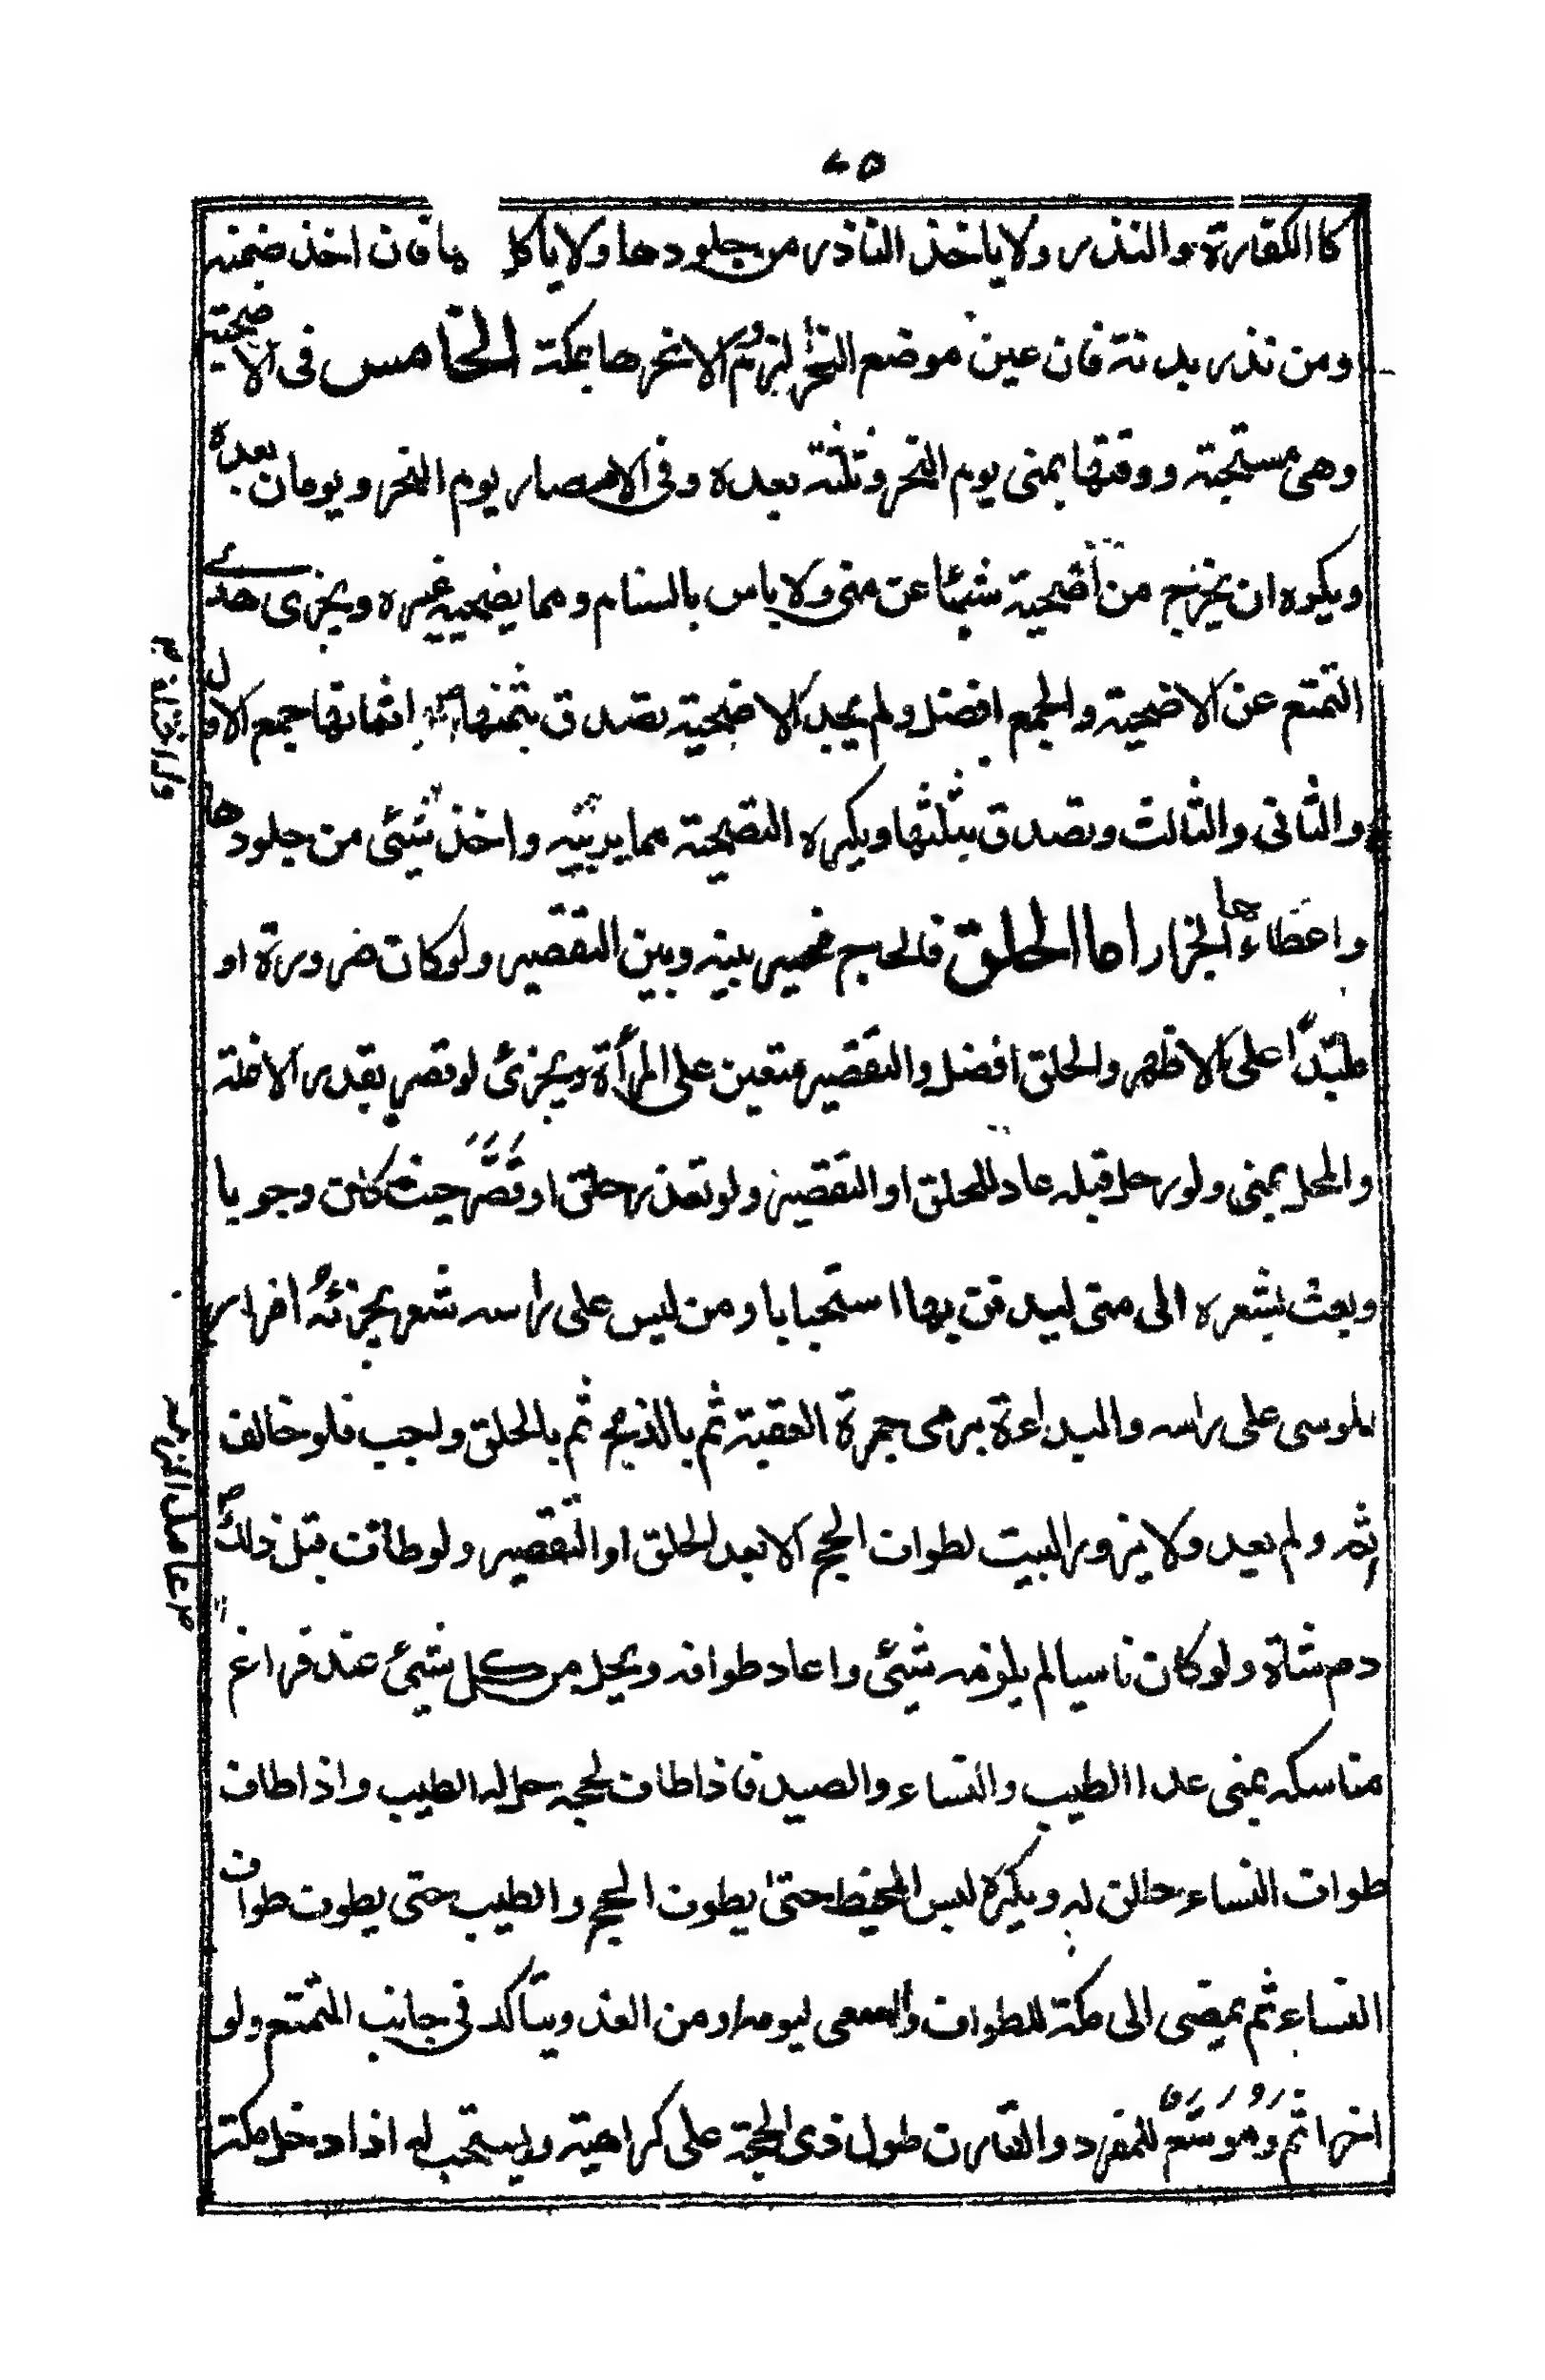 ٧٥
كا الكفارة والنذر ولا ياخذ الناذر من جلودها ولا ياكل يا فان اخذ ضمنه
ومن نذر بدنة فان عين موضع النحر لزم والا نحرها بمكة الخامس فى الاضحية
وهى مستحبة ووقتها بمنى يوم النحر وثلثة بعده وفى الامصار يوم النحر ويومان بعده
ويكره ان يخرج من اضحية شيئا عن منى ولا باس بالسنام ومما يضحيه غيره ويجزى هدى
التمتع عن الاضحية والجمع افضل ولم يجد الاضحية تصدق بثمنها اثمانها جمع الاول
والثانى والثالث وتصدق بثلثها ويكره التضحية مما يربيه واخذ شيئى من جلودها
واعطاءها الجزار اما الحلق فالحاج مخير بينه وبين التقصير ولو كان ضرورة او
ملبّدًا على الاظهر والحلق افضل والتقصير متعين على المرأة ويجزئ لو قصر بقدر الانملة
والمحل بمنى ولو رحل قبله عاد للحلق او التقصير ولو تعذر حلق او قصّر حيث كان وجوبا
وبعث بشعره الى منى ليدفن بها استحبابا ومن ليس على راسه شعر يجزئه امرار
الموسى على راسه والبداءة برمى جمرة العقبة ثم بالذبح ثم بالحلق واجب فلو خالف
اثم ولم يعد ولا يزور البيت لطواف الحج الا بعد الحلق او التقصير ولو طاف قبل ذلك
دم شاة ولو كان ناسيا لم يلزمه شيئى واعاد طوافه ويحل من كل شيئ عند فراغ
مناسكه بمنى عدا الطيب والنساء والصيد فاذا طاف لحجه حل له الطيب واذا طاف
طواف النساء حللن له ويكره لبس المخيط حتى يطوف الحج والطيب حتى يطوف طواف
النساء ثم يمضى الى مكة للطواف والسعى ليومه او من الغد ويتاكد فى جانب المتمتع ولو
اخر اثم وموسّع للمفرد والقارن طول ذى الحجة على كراهية ويستحب له اذا دخل مكة